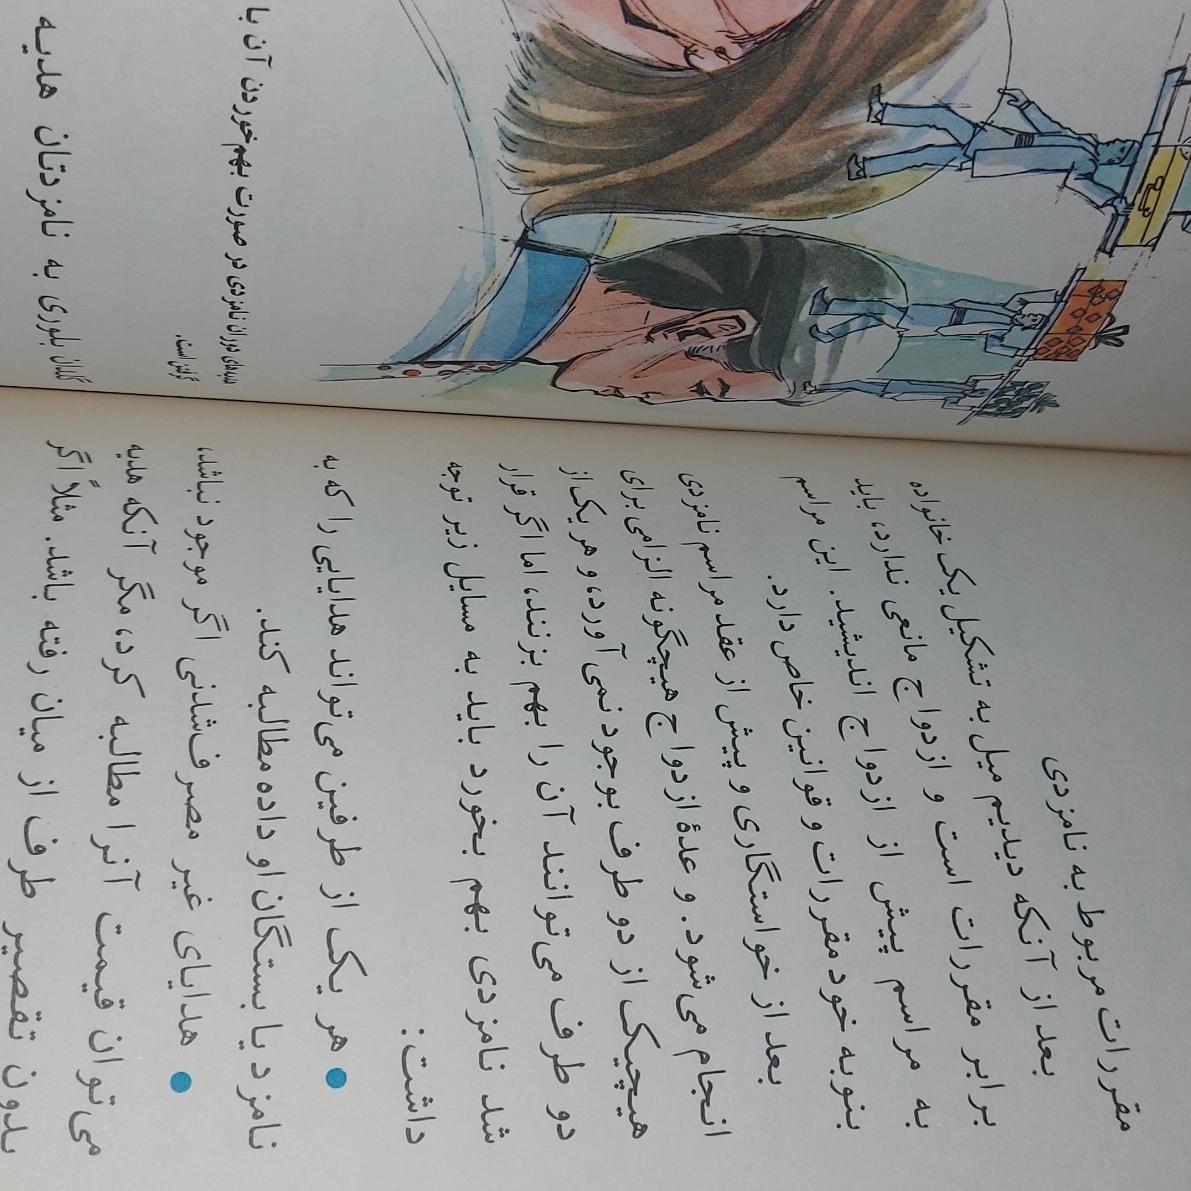 مقررات مربوط به نامزدی
بعد از آنکه دیدیم میل به تشکیل یک خانواده
برابر مقررات است و ازدواج مانعی ندارد، باید
به مراسم پیش از ازدواج اندیشید. این مراسم
بنوبه خود مقررات و قوانین خاص دارد.
بعد از خواستگاری و پیش از عقد مراسم نامزدی
انجام می‌شود. وعدهٔ ازدواج هیچگونه الزامی برای
هیچیک از دو طرف بوجود نمی‌آورد، و هر یک از
دو طرف می‌توانند آن را بهم بزنند، اما اگر قرار
شد نامزدی بهم بخورد باید به مسایل زیر توجه
داشت:
● هر یک از طرفین می‌تواند هدایایی را که به
نامزد یا بستگان او داده مطالبه کند.
● هدایای غیر مصرف‌شدنی اگر موجود نباشد،
می‌توان قیمت آنرا مطالبه کرد، مگر آنکه هدیه
بدون تقصیر طرف از میان رفته باشد. مثلاً اگر
گلدان بلوری به نامزدتان هدیه
هدیه‌های دوران نامزدی در صورت بهم خوردن آن با
است.